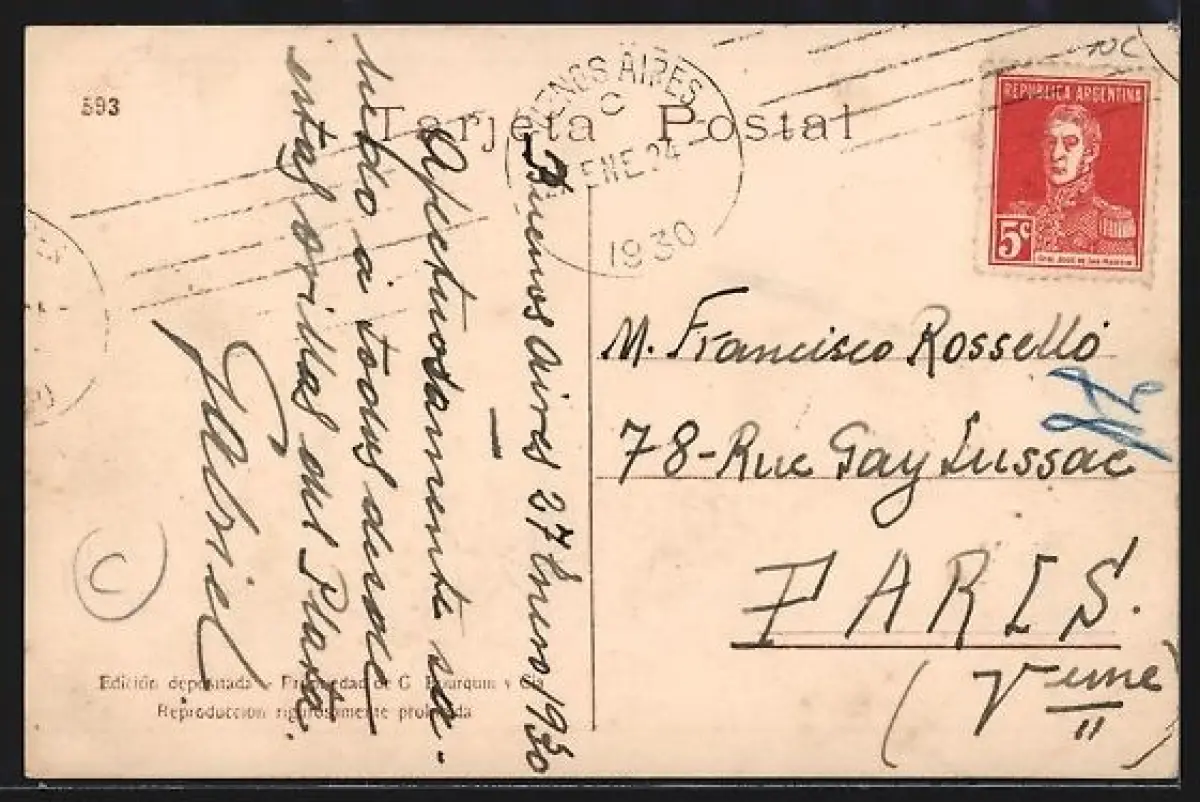 593
Tarjeta Postal
BUENOS AIRES
C
ENE. 24
1930
10c
REPUBLICA ARGENTINA
5c
Gral José de San Martín
Buenos Aires 27 Enero 1930
Afectuosamente sa-
ludo a todos desde
estas orillas del Plata.
Gabriel
M. Francisco Rosselló
78-Rue Gay Lussac
PARIS.
(Veme)
Edición depositada y Propiedad de G. Bourquin y Cia
Reproducción rigurosamente prohibida